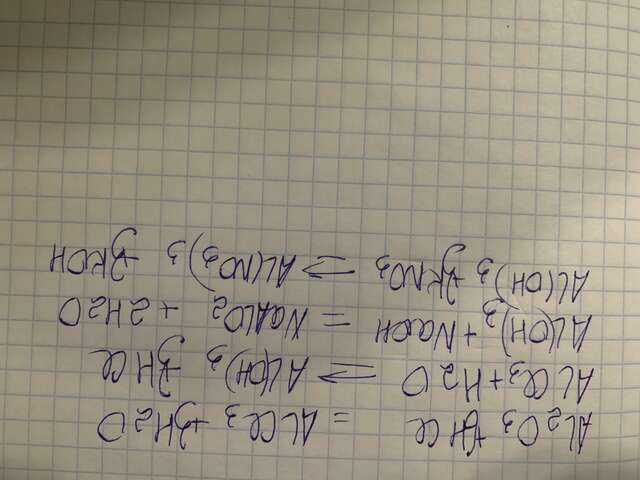 Al2O3+6HCl = AlCl3+3H2O
AlCl3+H2O ⇌ Al(OH)3 +3HCl
Al(OH)3+NaOH = NaAlO2 + 2H2O
Al(OH)3 +3KNO3 ⇌ Al(NO3)3 +3KOH